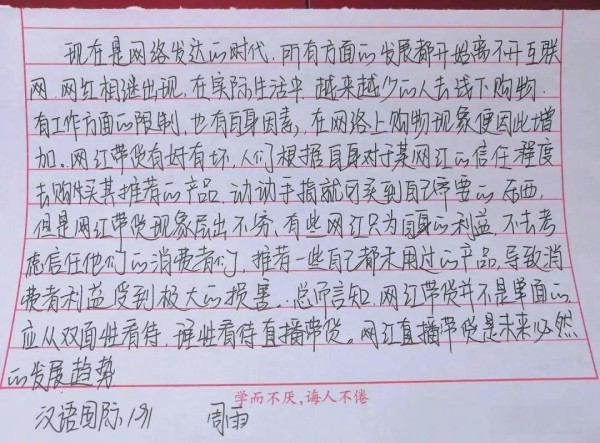 现在是网络发达的时代，所有方面的发展都开始离不开互联
网，网红相继出现，在实际生活中，越来越少的人去线下购物，
有工作方面的限制，也有自身因素，在网络上购物现象便因此增
加。网红带货有好有坏，人们根据自身对于某网红的信任程度
去购买其推荐的产品，动动手指就可买到自己需要的东西，
但是网红带货现象层出不穷，有些网红只为自身的利益，不去考
虑信任他们的消费者们，推荐一些自己都未用过的产品，导致消
费者利益受到极大的损害。总而言知，网红带货并不是单面的
应从双面性看待，理性看待直播带货。网红直播带货是未来必然
的发展趋势
学而不厌，诲人不倦
汉语国际191 周雨